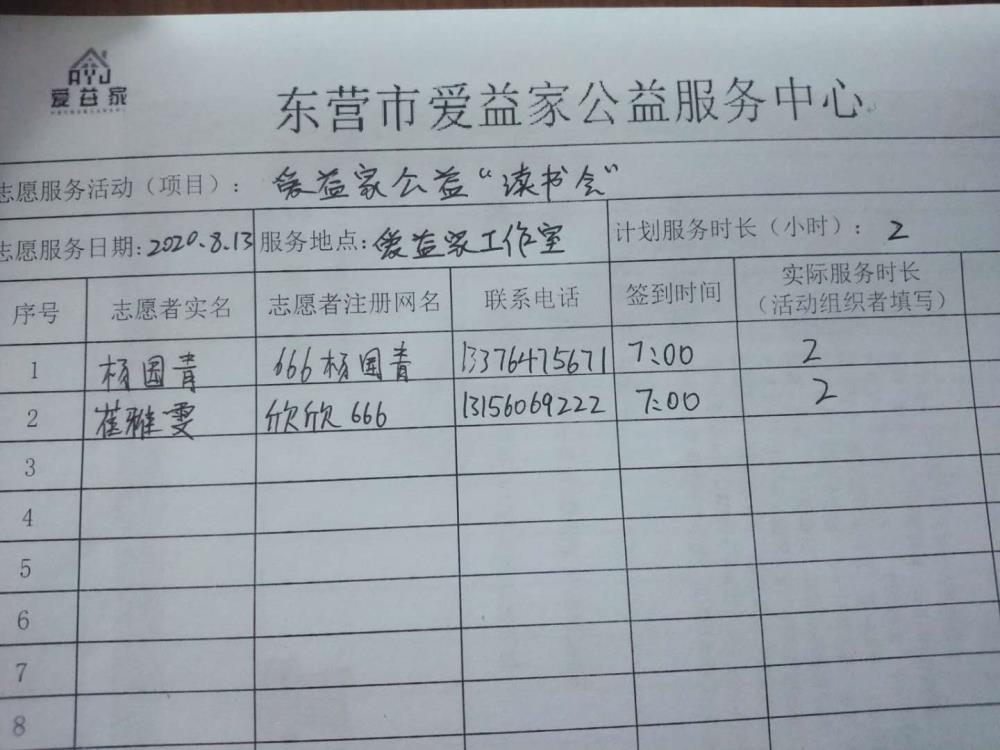 AYJ
爱益家
东营市爱益家公益服务中心
志愿服务活动（项目）： 爱益家公益“读书会”
志愿服务日期:2020.8.13 服务地点:爱益家工作室 计划服务时长（小时）：2
序号 志愿者实名 志愿者注册网名 联系电话 签到时间 实际服务时长
（活动组织者填写）
1 杨国青 666杨国青 13376475671 7:00 2
2 崔雅雯 欣欣666 13156069222 7:00 2
3
4
5
6
7
8